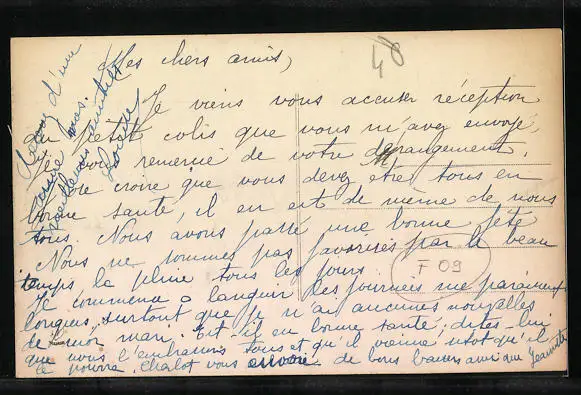 Mes chers amis,
48
Je viens vous accuser réception
du petit colis que vous m'avez envoyé,
Je vous remercie de votre dérangement.
croire que vous devez être tous en
bonne santé, il en est de même de nous
tous. Nous avons passé une bonne fête
Nous ne sommes pas favorisés par le beau
temps la pluie tous les jours.
F 09
Je commence a languir les journées me paraissent
longues surtout que je n'ai aucunes nouvelles
de mon mari. Est-il en bonne santé, dites-lui
que nous l'embrassons tous et qu'il vienne sitot qu'il
le pourra. Chalot vous envoie de bons baisers ainsi que Jeannette
d'une
Louise